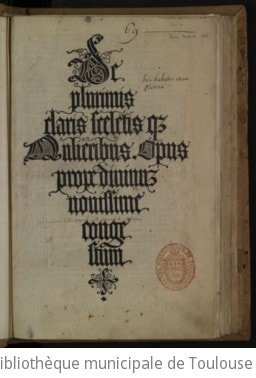 69
De
plurimis
claris sceletis qʒ
Mulieribus. Opus
prope diuinuʒ
nouissime
conge
stum.
ibliothèque municipale de Toulouse